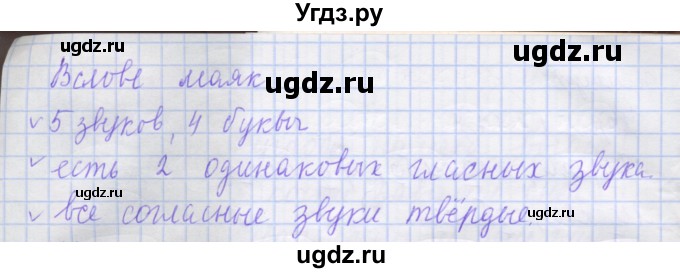 Угдз.ру
ugdz.ru ugdz.ru
В слове маяк ugdz.ru
✓ 5 звуков, 4 буквы
✓ есть 2 одинаковых гласных звука.
ugdz.ru
✓ все согласные звуки твёрдые. ugdz.ru
ugdz.ru